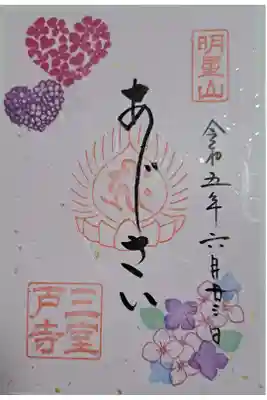 明星山
令和五年六月廿三日
あじさい
三室
戸寺